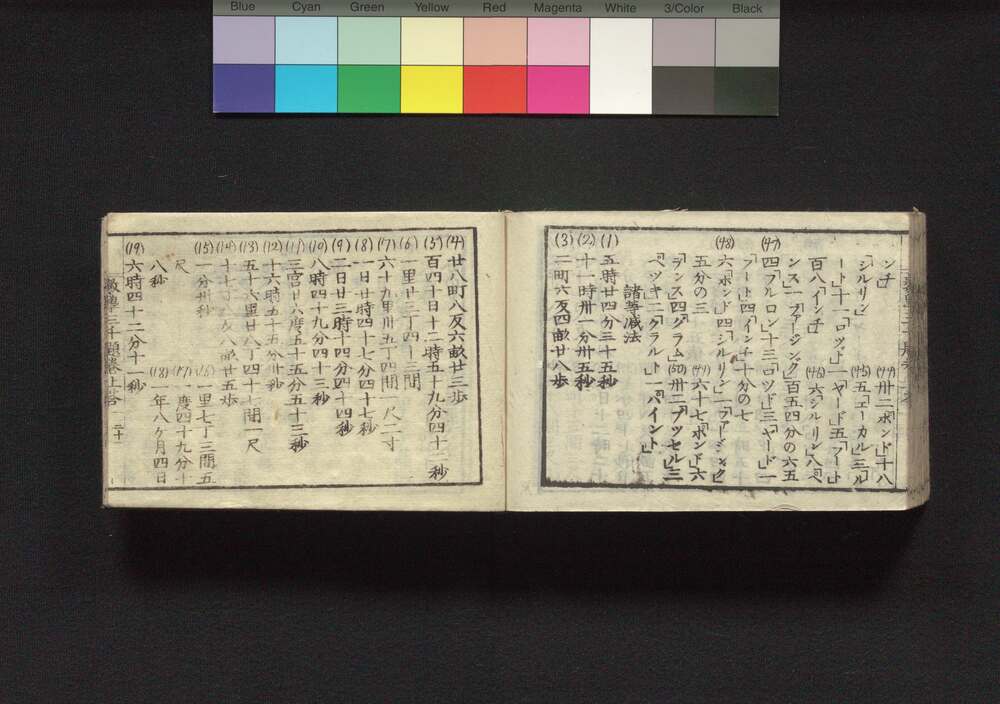 Blue Cyan Green Yellow Red Magenta White 3/Color Black
ンチ」
(44) 卅二「ポンド」十八
「シルリン」
(45) 五「ヱーカル」三「ル
ート」十一「ロツド」一「ヤード」五「フート」
百八「インチ」
(46) 六「シルリン」八「ペ
ンス」一「フアージング」百五四分の六五
(47)
四「フルロン」十三「ロツド」三「ヤード」一
「フート」四「インチ」十分の七
(48)
六「ポンド」四「シルリン」一「フアージング」
五分の三
(49) 六十七「ポンド」六
「ランス」四「グラム」(50) 卅二「ブツセル」三
「ペツキ」二「クラルト」一「パイント」
諸等減法
(1) 五時廿四分三十五秒
(2) 十一時卅一分卅五秒
(3) 二町六反四畝廿八歩
(4) 廿八町八反六畝廿三歩
(5) 百四十日十二時五十九分四十二秒
(6) 一里廿三丁四十三間
(7) 六十九里卅五丁四間一尺二寸
(8) 一日廿時四十七分四十七秒
(9) 二日廿三時十四分四十四秒
(10) 八時四十九分四十三秒
(11) 三宮廿八度五十五分五十三秒
(12) 十六時五十五分卅秒
(13) 五十六里廿八丁四十七間一尺
(14) 八畝廿五歩
(15) 分卅秒
(16) 一里七丁三間五
尺
(17) 一度四十九分十
八秒
(18) 一年八ヶ月四日
(19) 六時四十二分十一秒
数学三千題巻上答 三十